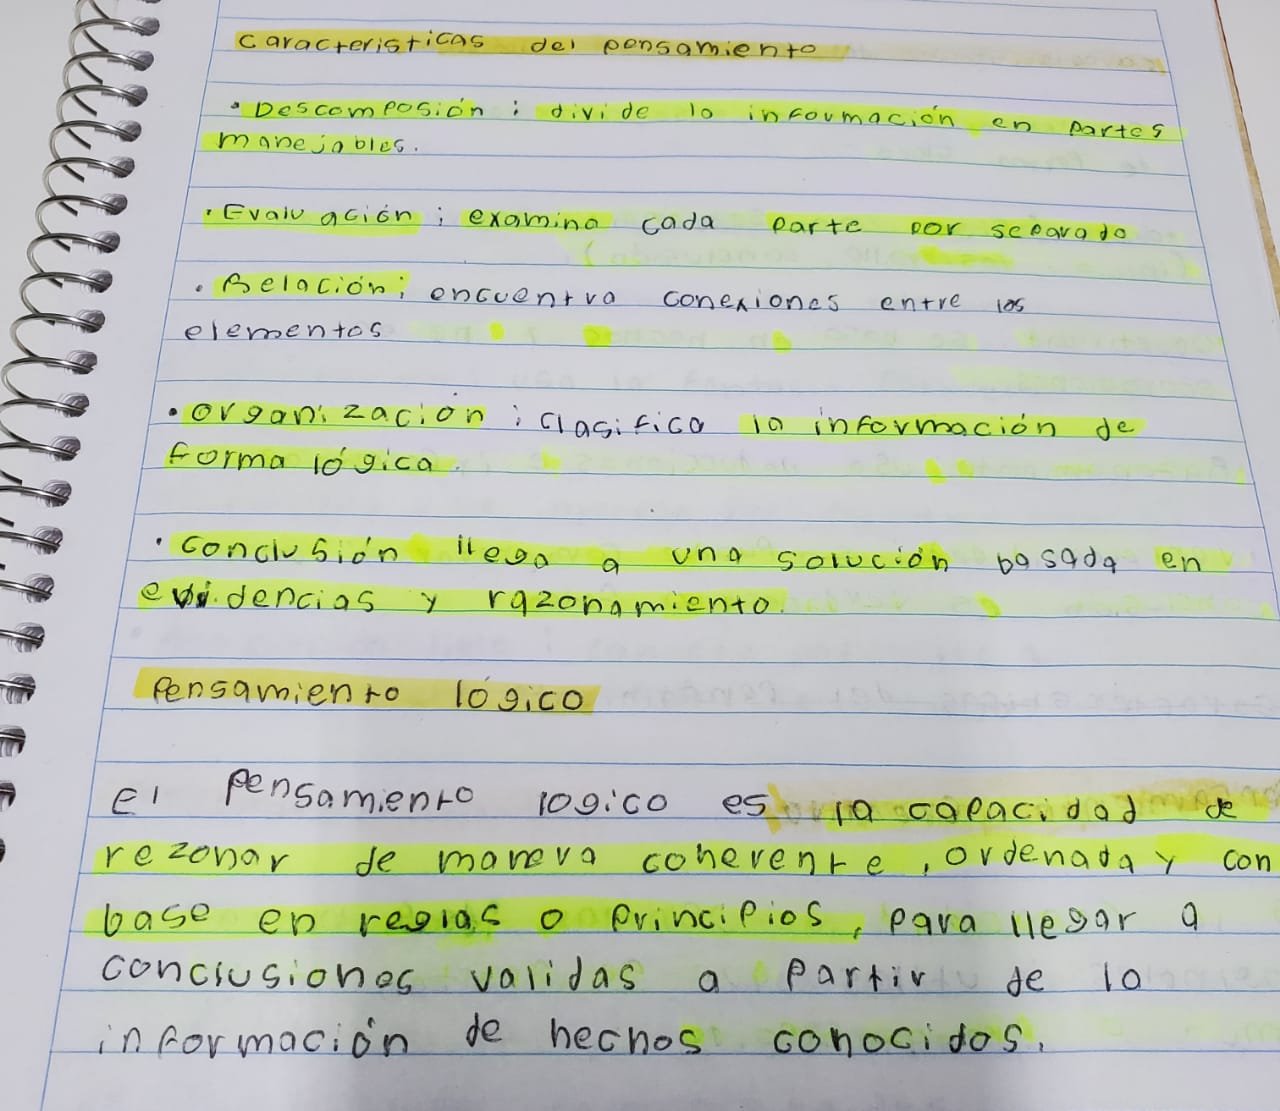 caracteristicas del pensamiento
• Descomposión : divide la información en partes
manejables.
• Evaluación ; examina cada parte por separado
• Relación ; encuentra conexiones entre los
elementos
• organización ; clasifica la información de
forma lógica.
• conclusión llega a una solución basada en
evidencias y razonamiento.
Pensamiento lógico
el Pensamiento logico es la capacidad de
rezonar de manera coherente, ordenada y con
base en reglas o principios, para llegar a
conclusiones validas a partir de la
información de hechos conocidos.